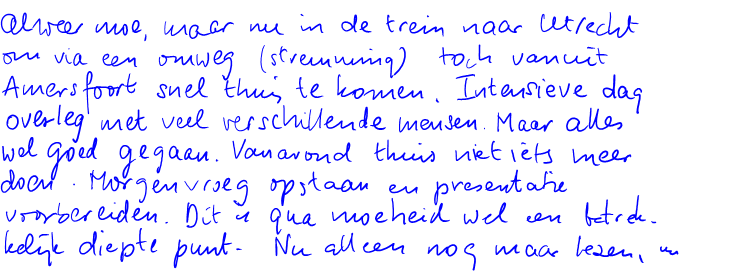 Alweer moe, maar nu in de trein naar Utrecht
om via een omweg (stremming) toch vanuit
Amersfoort snel thuis te komen. Intensieve dag
overleg met veel verschillende mensen. Maar alles
wel goed gegaan. Vanavond thuis niet iets meer
doen. Morgen vroeg opstaan en presentatie
voorbereiden. Dit is qua moeheid wel een betrek-
kelijk diepte punt. Nu alleen nog maar lezen,